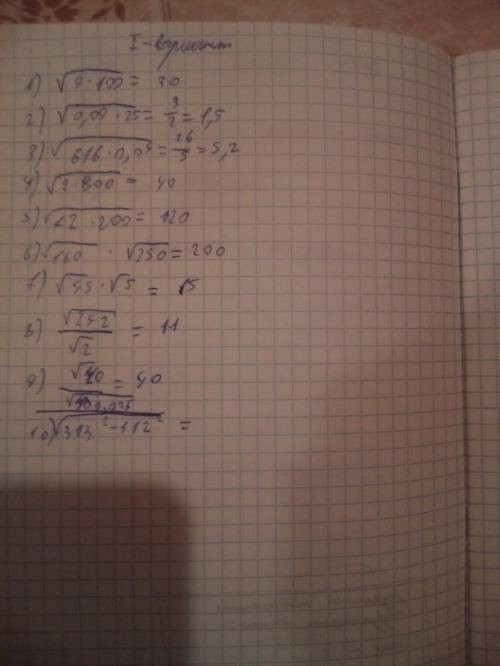 I-вариант
1) √9·100 = 30
2) √0,09·25 = 3/2 = 1,5
3) √616·0,04 = 26/5 = 5,2
4) √2·800 = 40
5) √72·200 = 120
6) √160 · √250 = 200
7) √45·√5 = 15
8) √242/√2 = 11
9) √40/√0,025 = 40
10) √313²-312² =